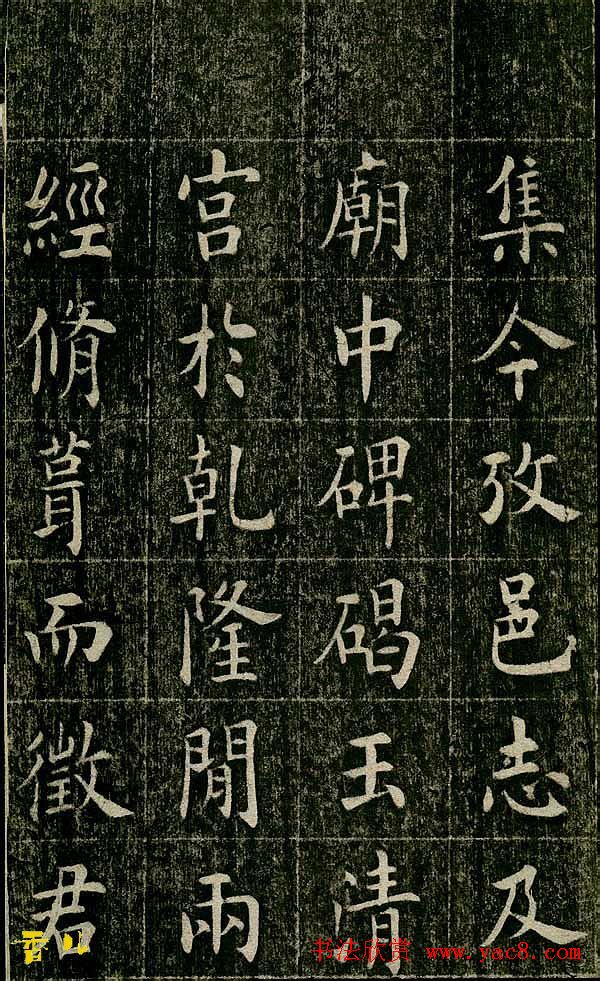 集今攷邑志及
廟中碑碣玉清
宮於乾隆閒兩
經脩葺而徵君
书法欣赏 www.yac8.com